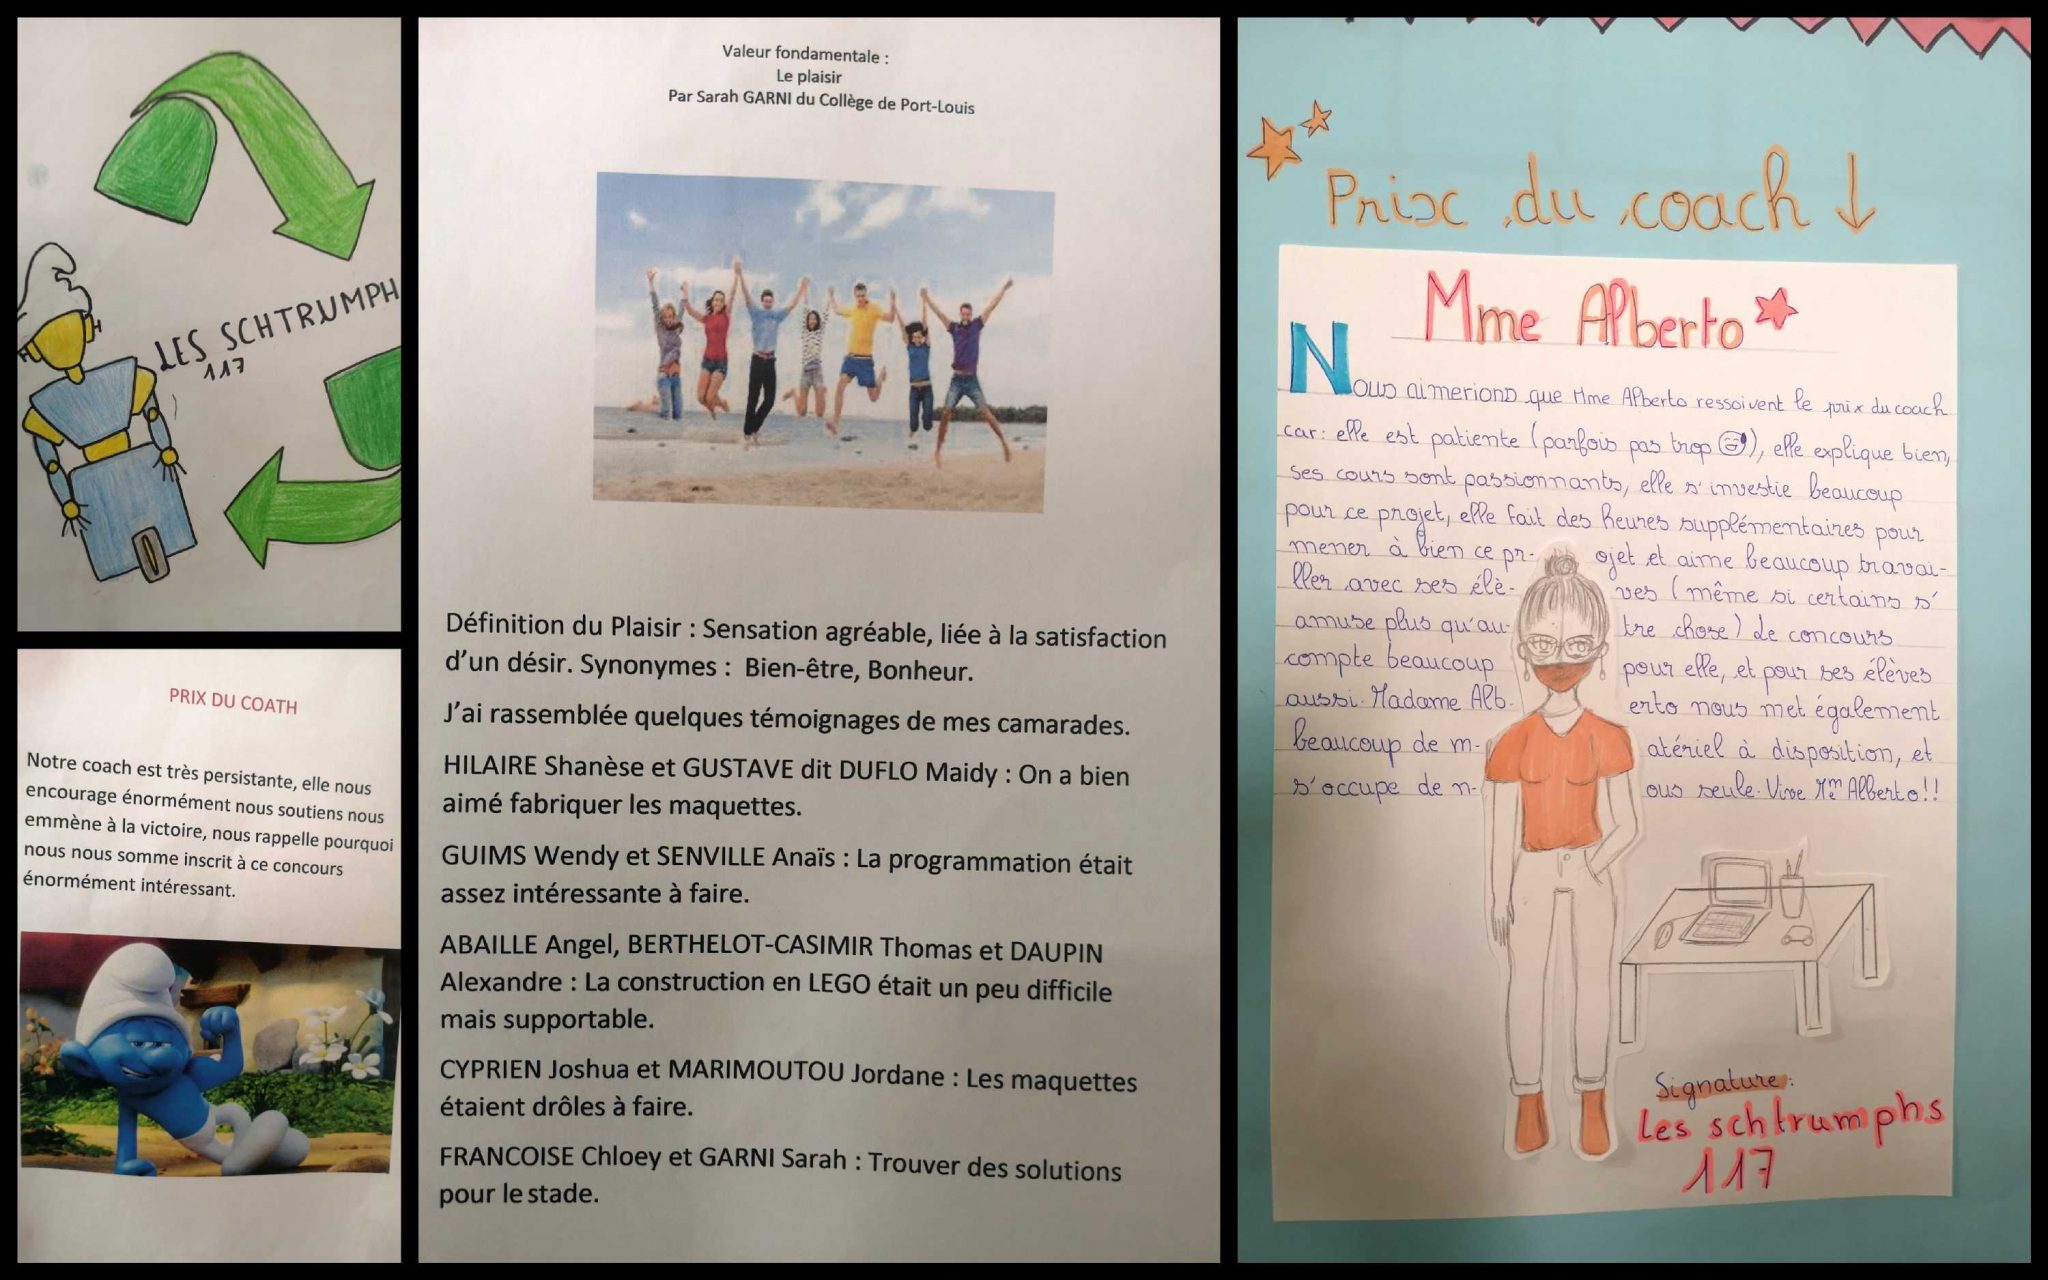 LES SCHTRUMPH
117
PRIX DU COATH
Notre coach est très persistante, elle nous
encourage énormément nous soutiens nous
emmène à la victoire, nous rappelle pourquoi
nous nous somme inscrit à ce concours
énormément intéressant.
Valeur fondamentale :
Le plaisir
Par Sarah GARNI du Collège de Port-Louis
Définition du Plaisir : Sensation agréable, liée à la satisfaction
d'un désir. Synonymes : Bien-être, Bonheur.
J'ai rassemblée quelques témoignages de mes camarades.
HILAIRE Shanèse et GUSTAVE dit DUFLO Maidy : On a bien
aimé fabriquer les maquettes.
GUIMS Wendy et SENVILLE Anaïs : La programmation était
assez intéressante à faire.
ABAILLE Angel, BERTHELOT-CASIMIR Thomas et DAUPIN
Alexandre : La construction en LEGO était un peu difficile
mais supportable.
CYPRIEN Joshua et MARIMOUTOU Jordane : Les maquettes
étaient drôles à faire.
FRANCOISE Chloey et GARNI Sarah : Trouver des solutions
pour le stade.
Prix du coach ↓
Mme Alberto
Nous aimerions que Mme Alberto ressoivent le prix du coach
car: elle est patiente (parfois pas trop 😅), elle explique bien,
ses cours sont passionnants, elle s'investie beaucoup
pour ce projet, elle fait des heures supplémentaires pour
mener à bien ce pr- ojet et aime beaucoup travai-
ller avec ses élè- ves (même si certains s'
amuse plus qu'au- tre chose) Le concours
compte beaucoup pour elle, et pour ses élèves
aussi. Madame Alb- erto nous met également
beaucoup de m- atériel à disposition, et
s'occupe de n- ous seule. Vive Mme Alberto!!
Signature:
Les schtrumphs
117